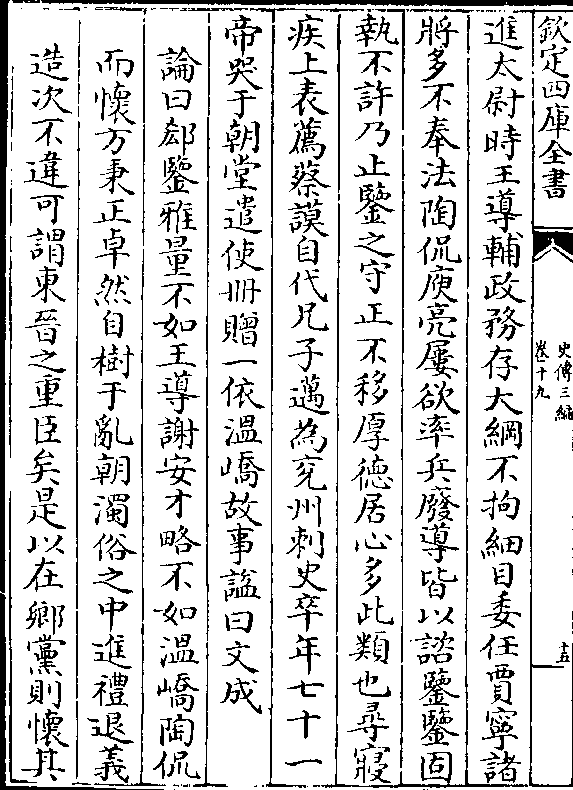 欽定四庫全書
史傳三編
卷十九
十五
進太尉時王導輔政務存大綱不拘細目委任賈寧諸
將多不奉法陶侃庾亮屢欲率兵廢導皆以諮鑒鑒固
執不許乃止鑒之守正不移厚德居心多此類也尋寢
疾上表薦蔡謨自代兄子邁為兖州刺史卒年七十一
帝哭于朝堂遣使冊贈一依溫嶠故事諡曰文成
論曰郄鑒雅量不如王導謝安才略不如溫嶠陶侃
而懷方秉正卓然自樹于亂朝濁俗之中進禮退義
造次不違可謂東晉之重臣矣是以在鄉黨則懷其